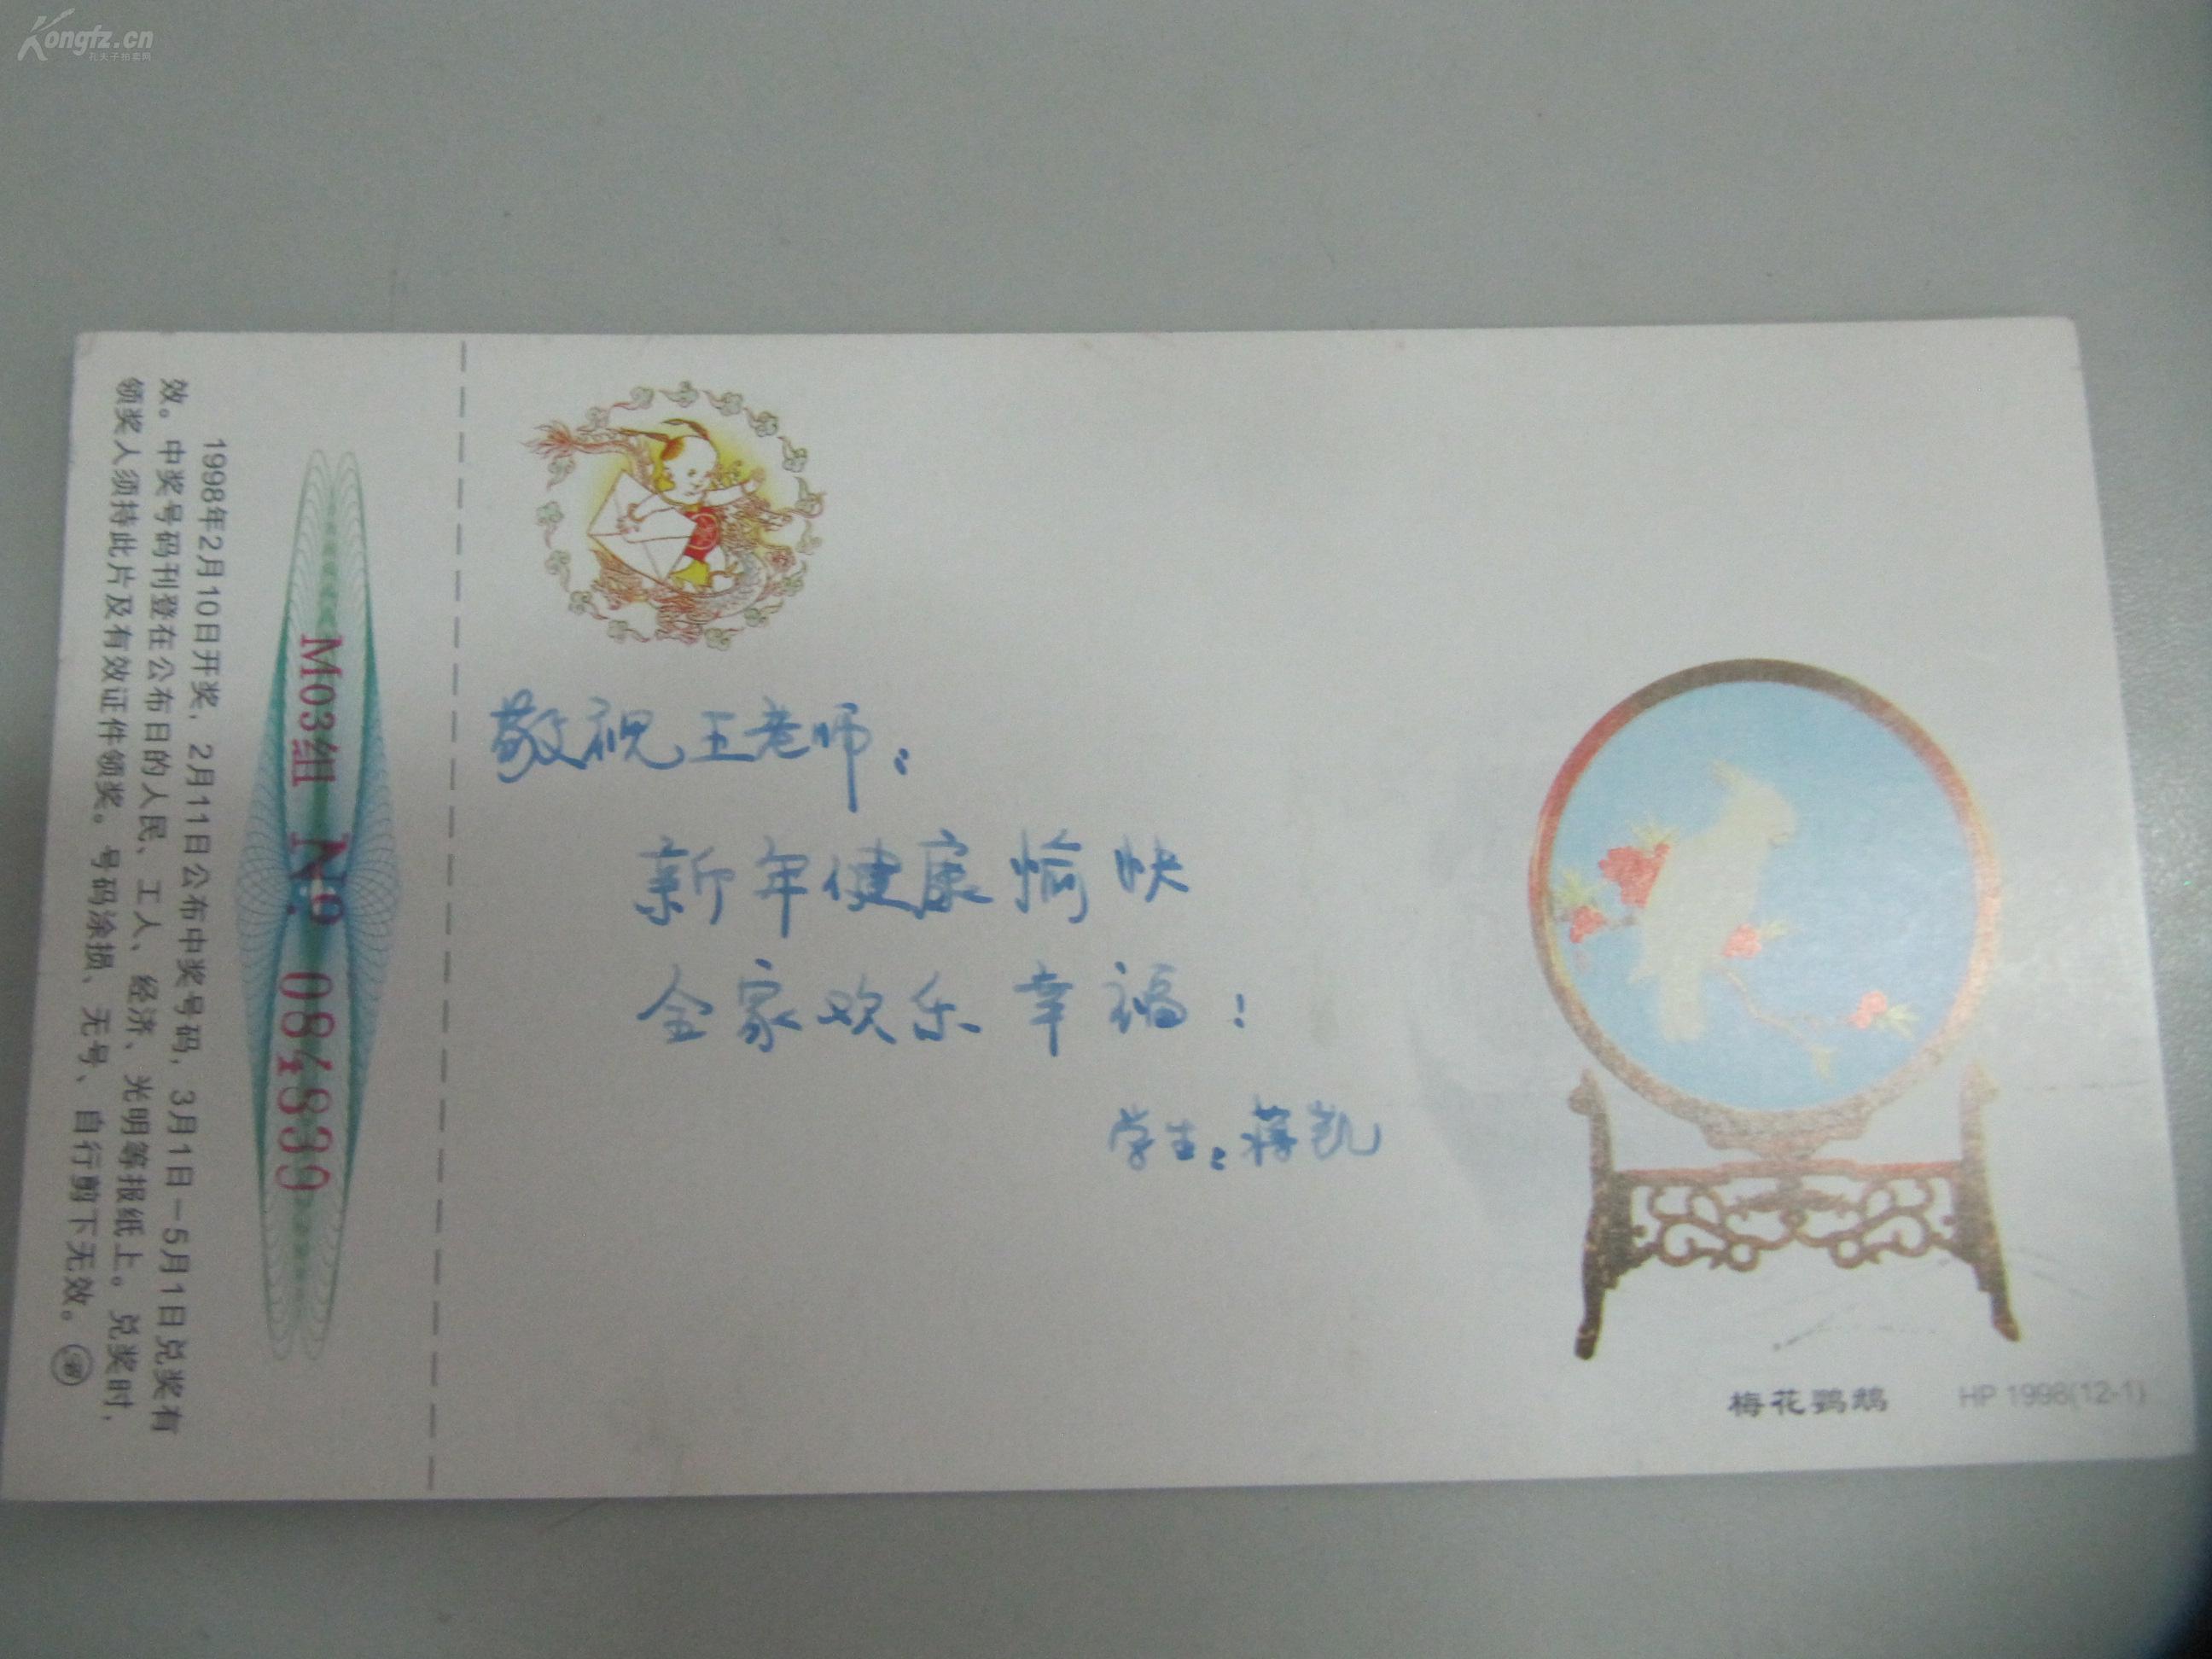 Kongfz.cn
孔夫子拍卖网
1998年2月10日开奖，2月11日公布中奖号码，3月1日－5月1日兑奖有
效。中奖号码刊登在公布日的人民、工人、经济、光明等报纸上。兑奖时，
领奖人须持此片及有效证件领奖。号码涂损、无号、自行剪下无效。
M03组 № 084839
敬祝王老师：
新年健康愉快
全家欢乐幸福！
学生：蒋凯
梅花鹦鹉 HP 1998(12-1)